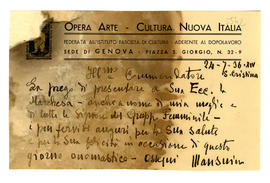 OPERA ARTE - CULTURA NUOVA ITALIA
FEDERATA ALL'ISTITUTO FASCISTA DI CULTURA - ADERENTE AL DOPOLAVORO
SEDE DI GENOVA - PIAZZA S. GIORGIO, N. 32-9
24-7-36-XIV
S. Cristina
Ill.mo Commendatore
La prego di presentare a Sua Ecc. la
Marchesa - anche a nome di mia moglie e
di tutte le Signore del Gruppo Femminile -
i più fervidi auguri per la Sua salute
e per la Sua felicità in occasione di questo
giorno onomastico - ossequi